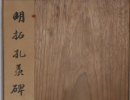 明拓孔羡碑